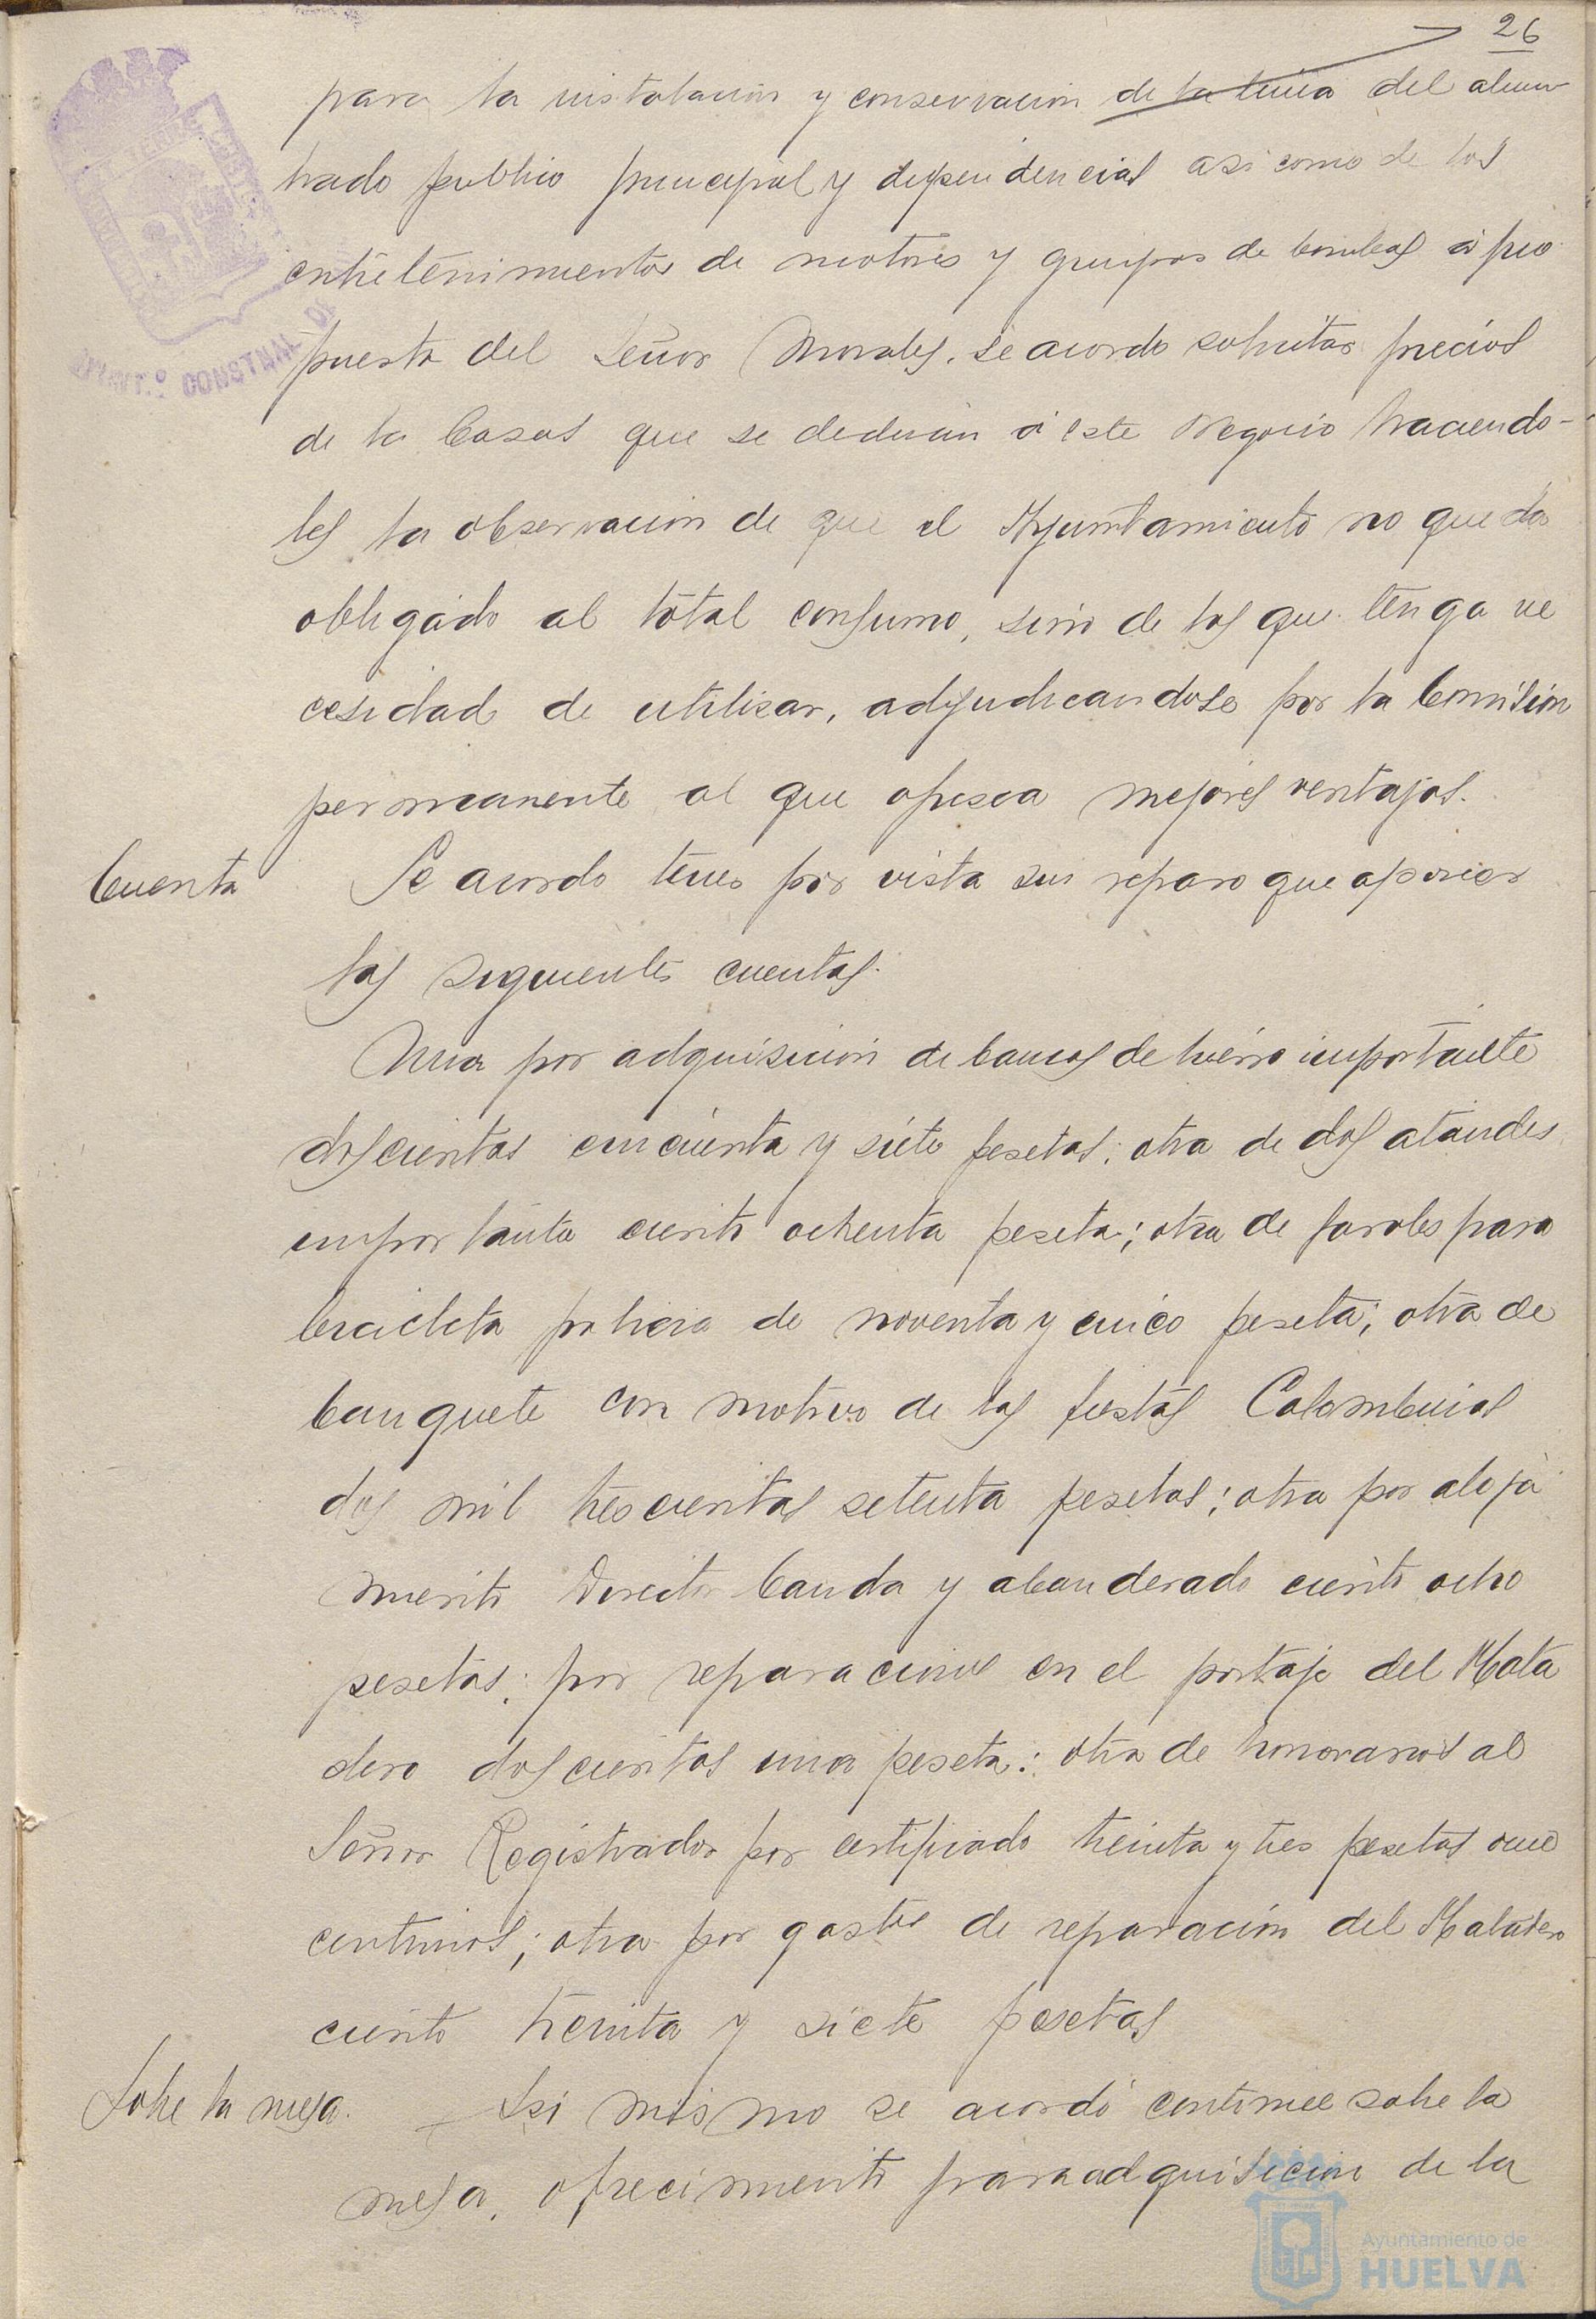 26
para la instalacion y conservacion de la linea del alum
brado publico principal y dependencias asi como de los
entretenimientos de motores y grupos de bombas á pro
puesta del Señor Morales, se acordo solicitar precios
de la Casas que se dedican á este Negocio haciendo-
les la observacion de que el Ayuntamiento no queda
obligado al total consumo, sino de los que tenga ne
cesidad de utilisar, adjudicandose por la Comisión
permanente al que ofresca mejores ventajas.
Cuenta
Se acordo tener por vista sin reparo que oponer
las siguientes cuentas.
Una por adquisición de bancos de hierro importante
doscientas cincuenta y siete pesetas; otra de dos ataudes
importante ciento ochenta peseta; otra de faroles para
bicicleta policia de noventa y cinco peseta; otra de
banquete con motivo de las fiestas Colombinas
dos mil trescientas setenta pesetas; otra por aloja
miento Director banda y abanderado ciento ocho
pesetas; por reparaciones en el portaje del Mata
dero doscientas una peseta; otra de honorarios al
Señor Registrador por certificado treinta y tres pesetas once
centimos; otra por gastos de reparación del Matadero
ciento treinta y siete pesetas
Sobre la mesa.
Asi mismo se acordó continue sobre la
mesa, ofrecimiento para adquisicion de la
AYUNT.º CONSTNAL DE
Ayuntamiento de
HUELVA